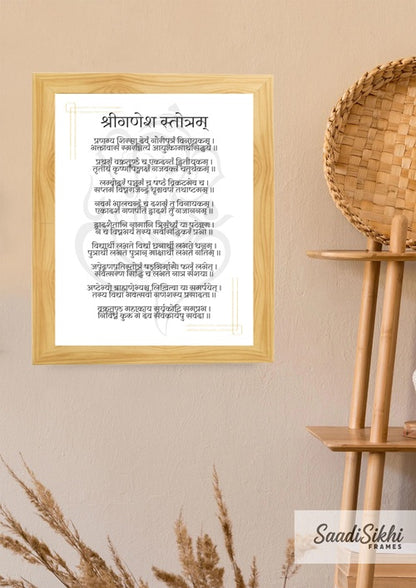 श्रीगणेश स्तोत्रम्
प्रणम्य शिरसा देवं गौरीपुत्रं विनायकम् ।
भक्तावासं स्मरेन्नित्यं आयुष्कामार्थसिद्धये ॥
प्रथमं वक्रतुण्डं च एकदन्तं द्वितीयकम् ।
तृतीयं कृष्णपिङ्गाक्षं गजवक्त्रं चतुर्थकम् ॥
लम्बोदरं पञ्चमं च षष्ठं विकटमेव च ।
सप्तमं विघ्नराजेन्द्रं धूम्रवर्णं तथाष्टमम् ॥
नवमं भालचन्द्रं च दशमं तु विनायकम् ।
एकादशं गणपतिं द्वादशं तु गजाननम् ॥
द्वादशैतानि नामानि त्रिसंध्यं यः पठेन्नरः ।
न च विघ्नभयं तस्य सर्वसिद्धिकरं प्रभो ॥
विद्यार्थी लभते विद्यां धनार्थी लभते धनम् ।
पुत्रार्थी लभते पुत्रान् मोक्षार्थी लभते गतिम् ॥
जपेद्गणपतिस्तोत्रं षड्भिर्मासैः फलं लभेत् ।
संवत्सरेण सिद्धिं च लभते नात्र संशयः ॥
अष्टेभ्यो ब्राह्मणेभ्यश्च लिखित्वा यः समर्पयेत् ।
तस्य विद्या भवेत्सर्वा गणेशस्य प्रसादतः ॥
वक्रतुण्ड महाकाय सूर्यकोटि समप्रभ ।
निर्विघ्नं कुरु मे देव सर्वकार्येषु सर्वदा ॥
SaadiSikhi
FRAMES